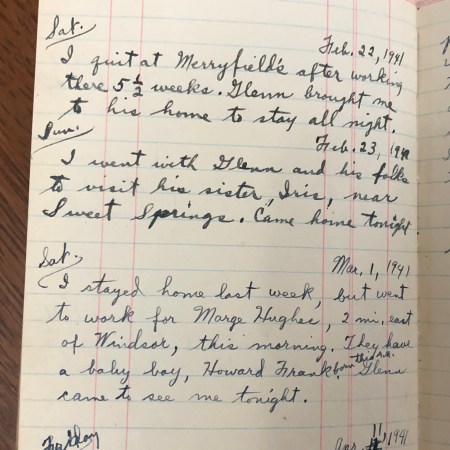 Sat.
Feb. 22, 1941
I quit at Merryfield's after working
there 5 1/2 weeks. Glenn brought me
to his home to stay all night.
Sun.
Feb. 23, 1941
I went with Glenn and his folks
to visit his sister, Iris, near
Sweet Springs. Came home tonight.
Sat.
Mar. 1, 1941
I stayed home last week, but went
to work for Marge Hughes, 2 mi. east
of Windsor, this morning. They have
a baby boy, Howard Frank born this a.m. Glenn
came to see me tonight.
Friday
Apr. 11, 1941